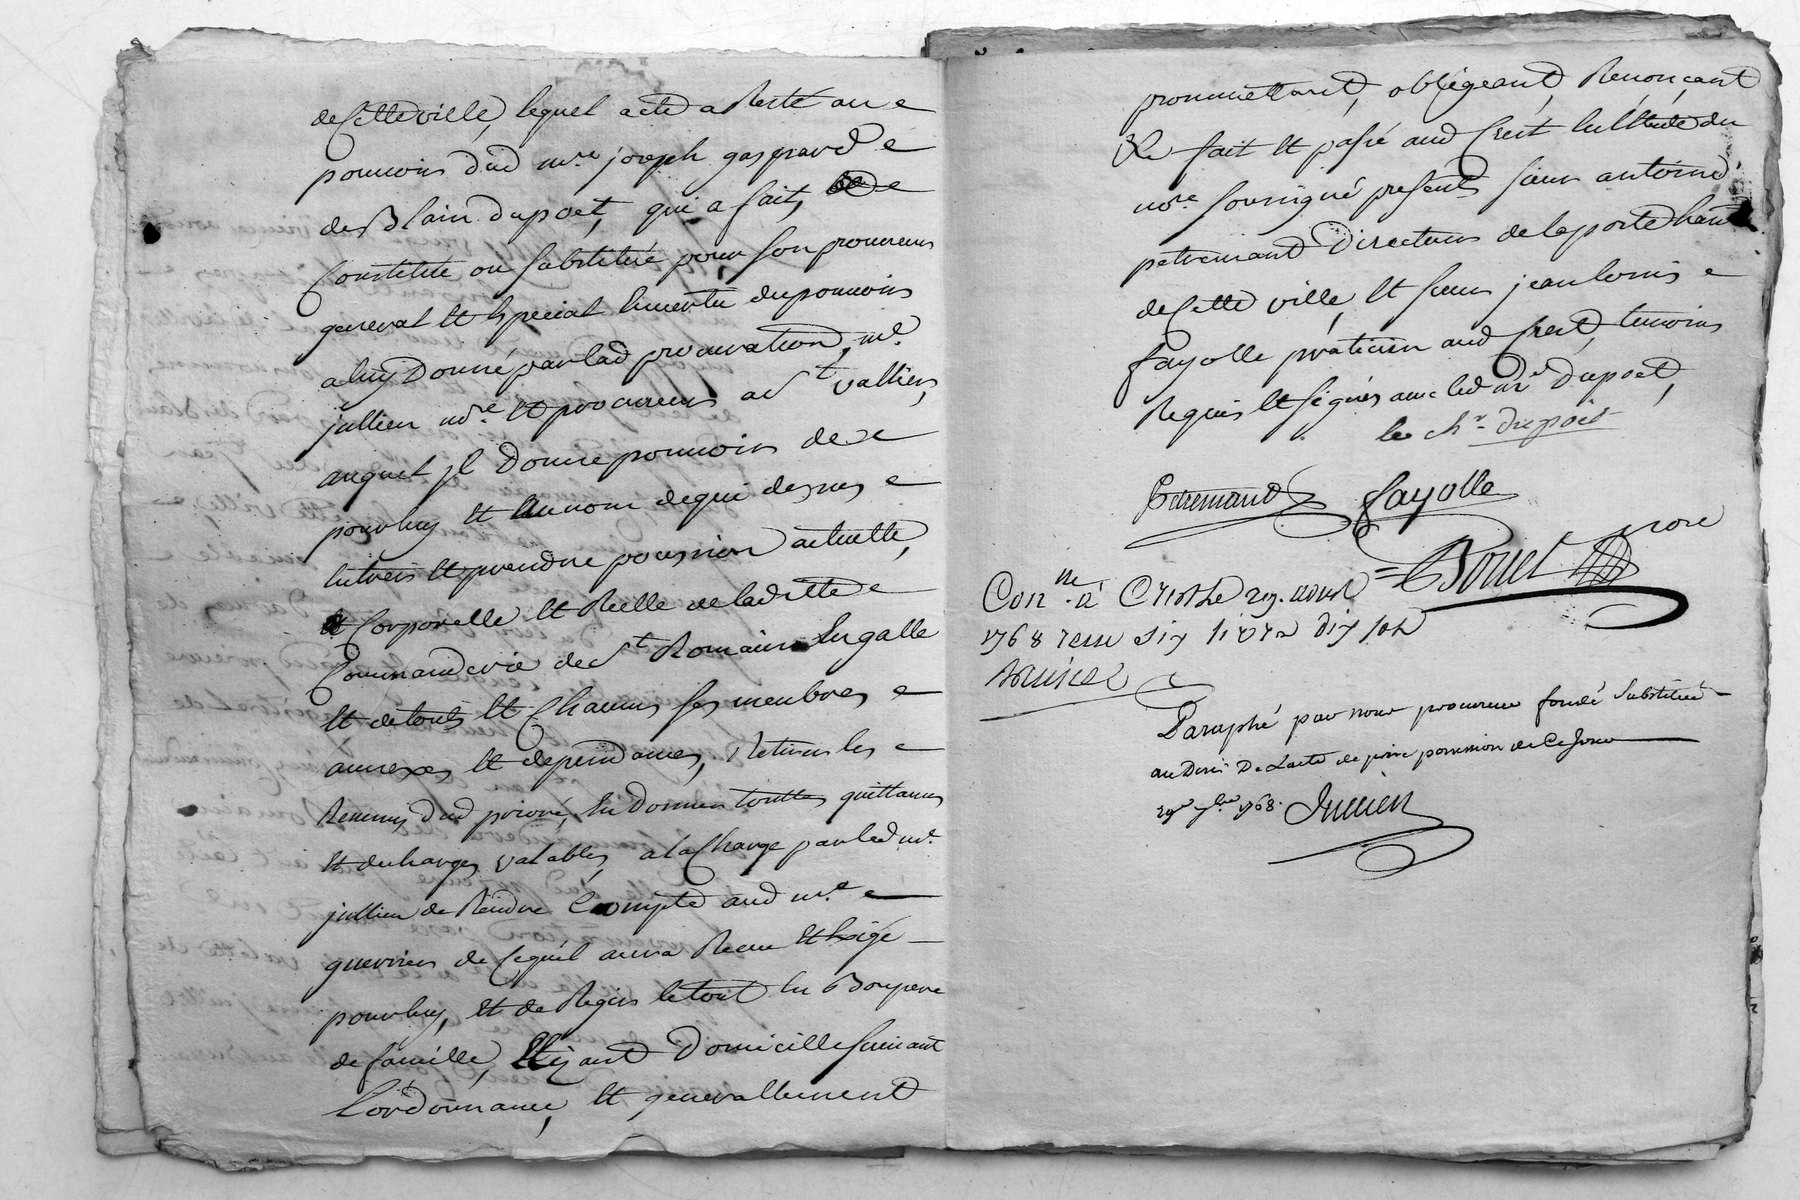 de Cette ville, lequel acte a Resté au
pouvoir dud mre joseph gaspard
de Blain dupoet, qui a fait,
Constitué ou substitué pour son procureur
general et special en vertu du pouvoir
a luy Donné par lad procuration, me
jullien nore et procureur a St vallier,
auquel jl Donne pouvoir de
pour luy et au nom de qui dessus
entrer et prendre possession actuelle,
Corporelle et Réelle de laditte
Commanderie de St Romain En galle
et de touts et Chacuns ses membres
annexes et dependances, Retirer les
Revenus dud prioré, En Donner touttes quittances
et decharges valables, a la Charge par led me
jullien de Rendre Compte aud mre
guerrier de Ce quil aura Receu et
pour luy, et de Regir le tout En Bon pere
de famille, Elizant Domicille suivant
L'ordonnance, et generallement
promettant, obligeant, Renonçant
fait et passé aud Crest Estude du
nore soussigné presents sieur antoine
petremand Directeur de la poste
de Cette ville, et sieur jean louis
fayolle praticien aud Crest, temoins
Requis et signés avec led mre Dupoet,
le chr dupoet
Petremand fayolle
Bouet nore
Conlle à Crest le 29. aoust
1768 receu six livres dix sols
Paraphé par nous procureur fondé substitué
au Desir De L'acte de prise possession de Ce jour
29e 7bre 1768. Jullien